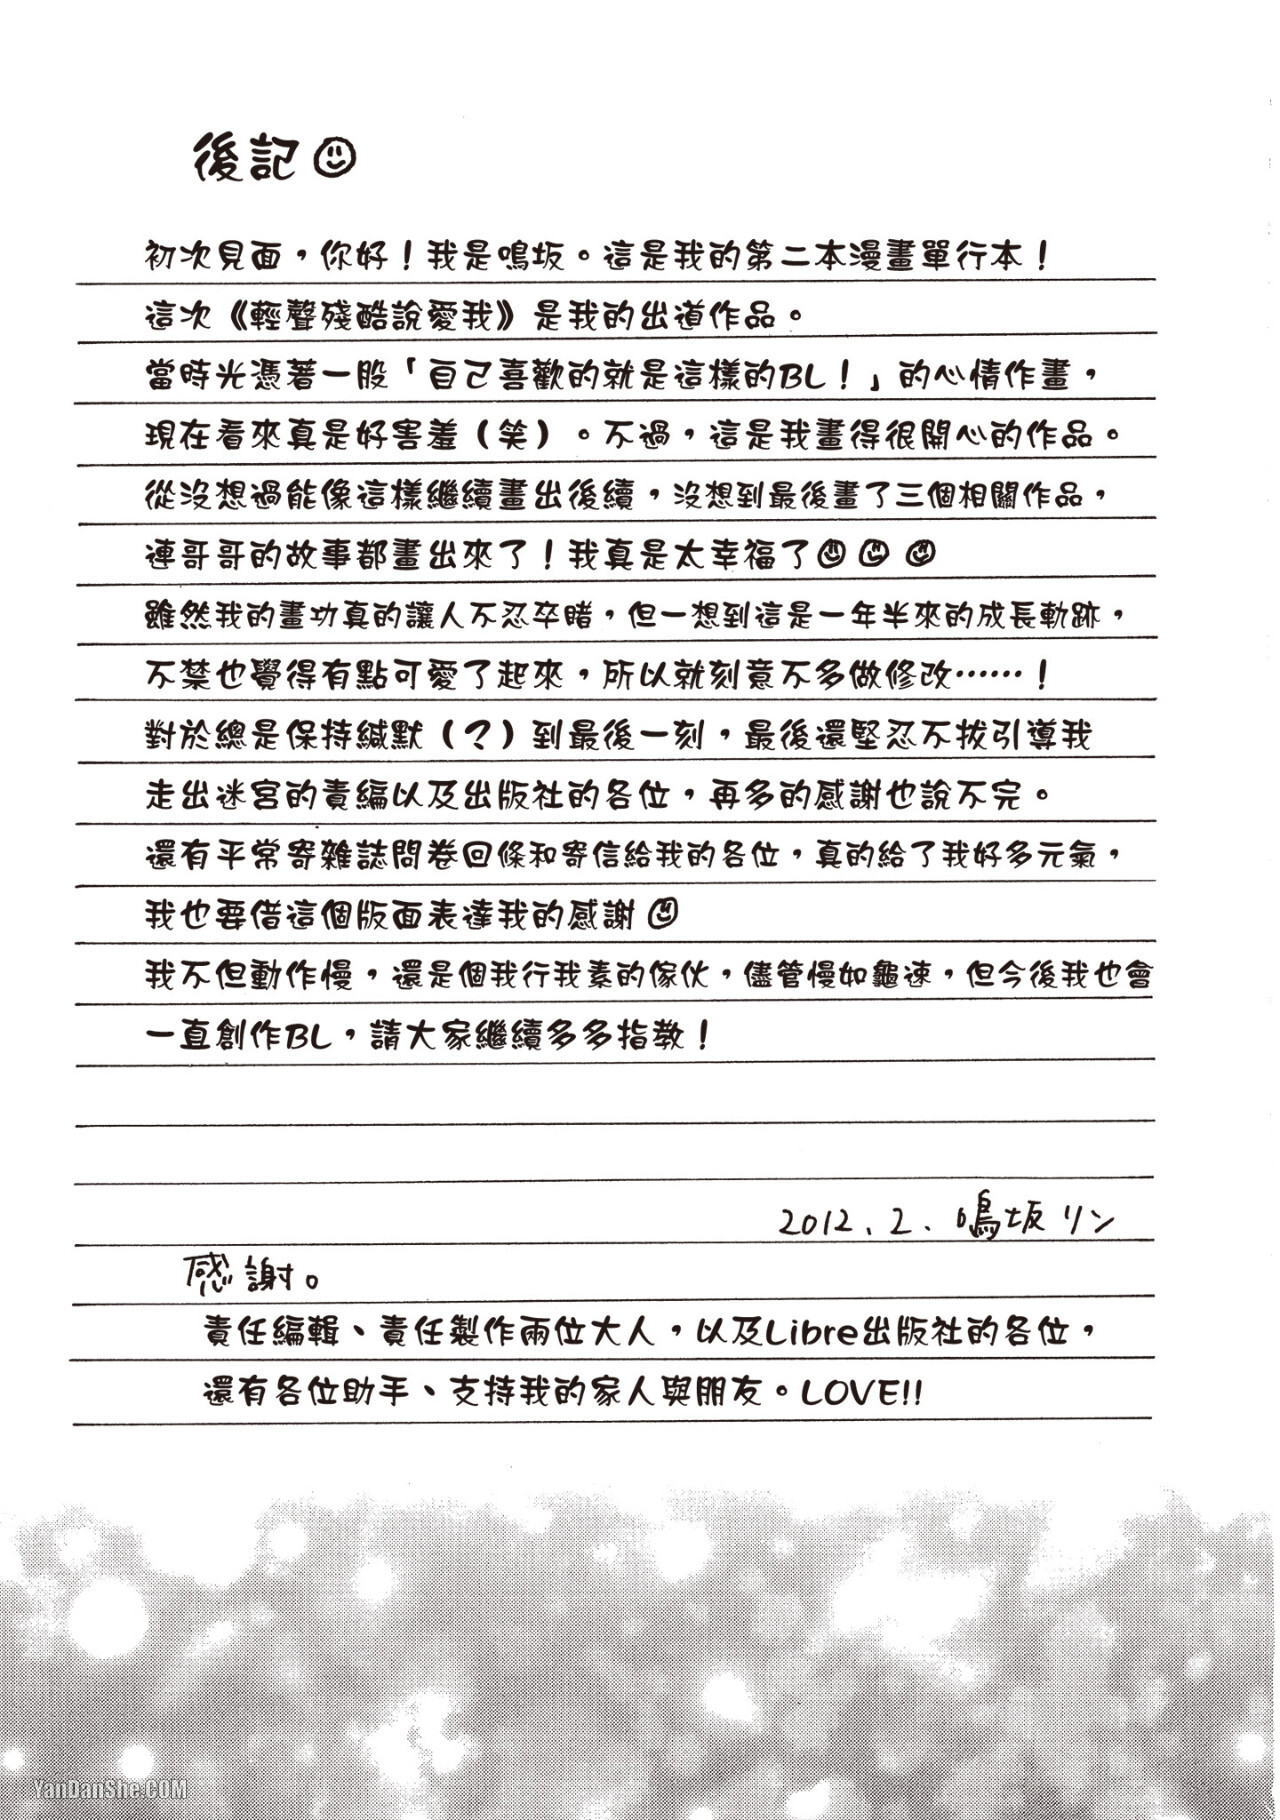 後記
初次見面，你好！我是鳴坂。這是我的第二本漫畫單行本！
這次《輕聲殘酷說愛我》是我的出道作品。
當時光憑著一股「自己喜歡的就是這樣的BL！」的心情作畫，
現在看來真是好害羞（笑）。不過，這是我畫得很開心的作品。
從沒想過能像這樣繼續畫出後續，沒想到最後畫了三個相關作品，
連哥哥的故事都畫出來了！我真是太幸福了
雖然我的畫功真的讓人不忍卒睹，但一想到這是一年半來的成長軌跡，
不禁也覺得有點可愛了起來，所以就刻意不多做修改……！
對於總是保持緘默（？）到最後一刻，最後還堅忍不拔引導我
走出迷宮的責編以及出版社的各位，再多的感謝也說不完。
還有平常寄雜誌問卷回條和寄信給我的各位，真的給了我好多元氣，
我也要借這個版面表達我的感謝
我不但動作慢，還是個我行我素的傢伙，儘管慢如龜速，但今後我也會
一直創作BL，請大家繼續多多指教！
2012.2. 鳴坂リン
感謝。
責任編輯、責任製作兩位大人，以及Libre出版社的各位，
還有各位助手、支持我的家人與朋友。LOVE!!
YanDanShe.COM